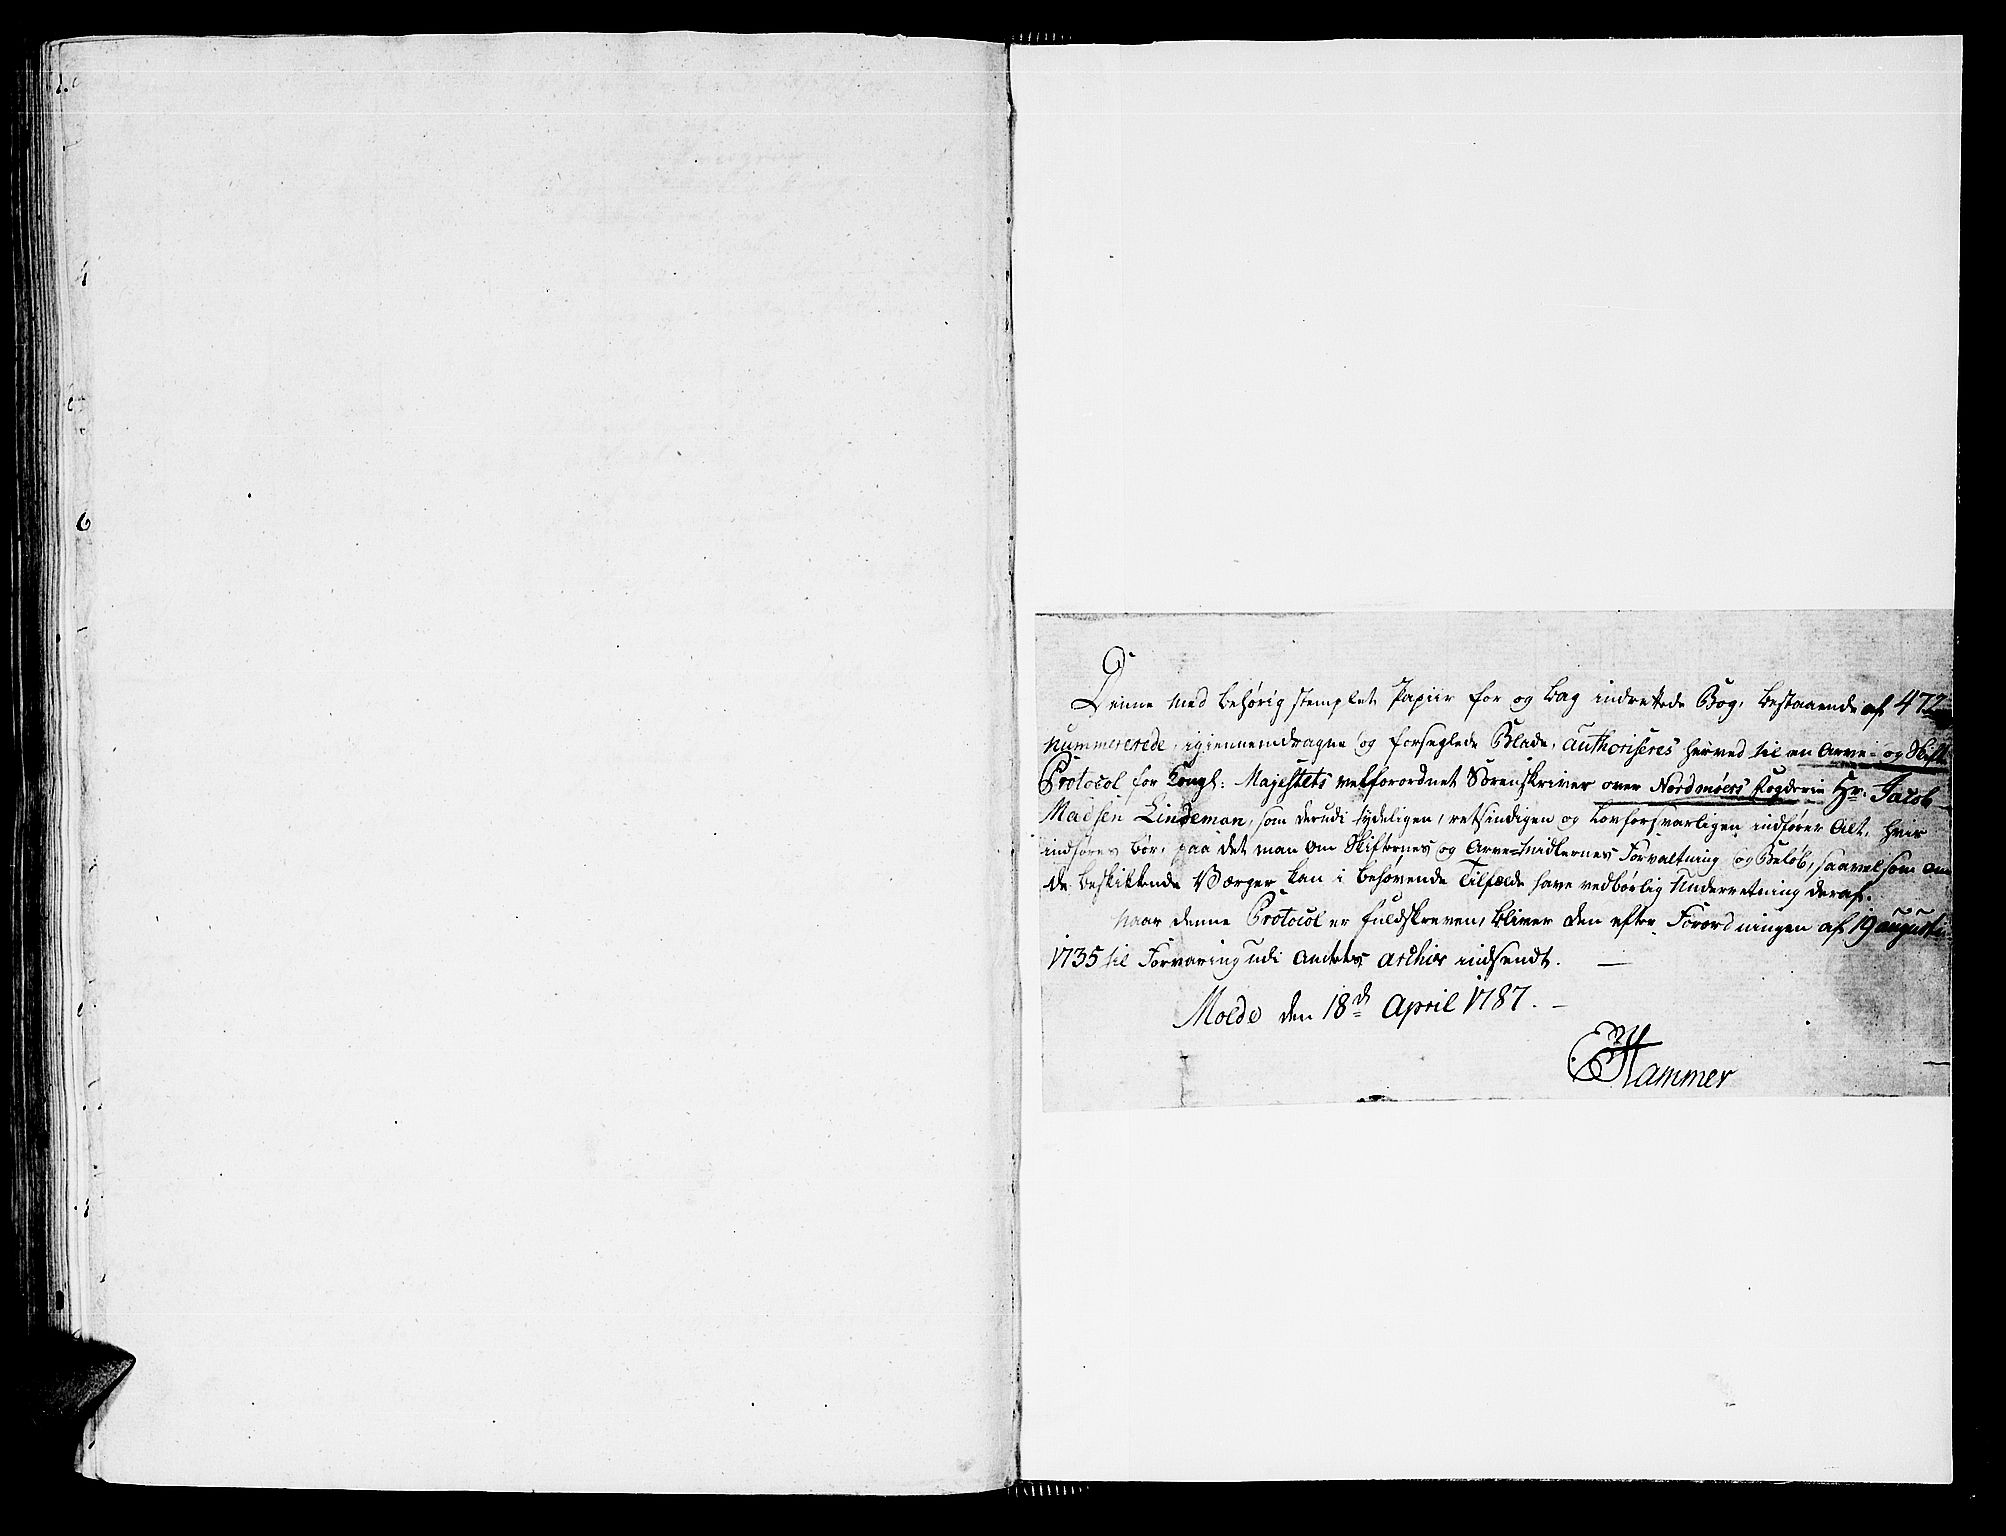 Denne med behørig stemplet Papiir for og bag indrettede Bog, bestaaende af 472
nummererede, igiennemdragne og forseglede Blade, authoriseres herved til en Arve- og Skift
Protocol for Kongl: Majestets velforordnet Sorenskriver over Nordmøers Fogderie Hr. Jacob
Madsen Lindeman, som derudi tydeligen, retsindigen og Lovforsvarligen indfører Alt, hvis
indføres bør, paa det man om Skifternes og Arve-Midlernes Forvaltning og Beløb, saavelsom om
de beskikkende Værger kan i behøvende Tilfælde have vedbørlig Underretning deraf.
Naar denne Protocol er fuldskreven, bliver den efter Forordningen af 19 augusti
1735 til Forvaring udi Amtets Archiv indsendt. —
Molde den 18d April 1787. —
Hammer